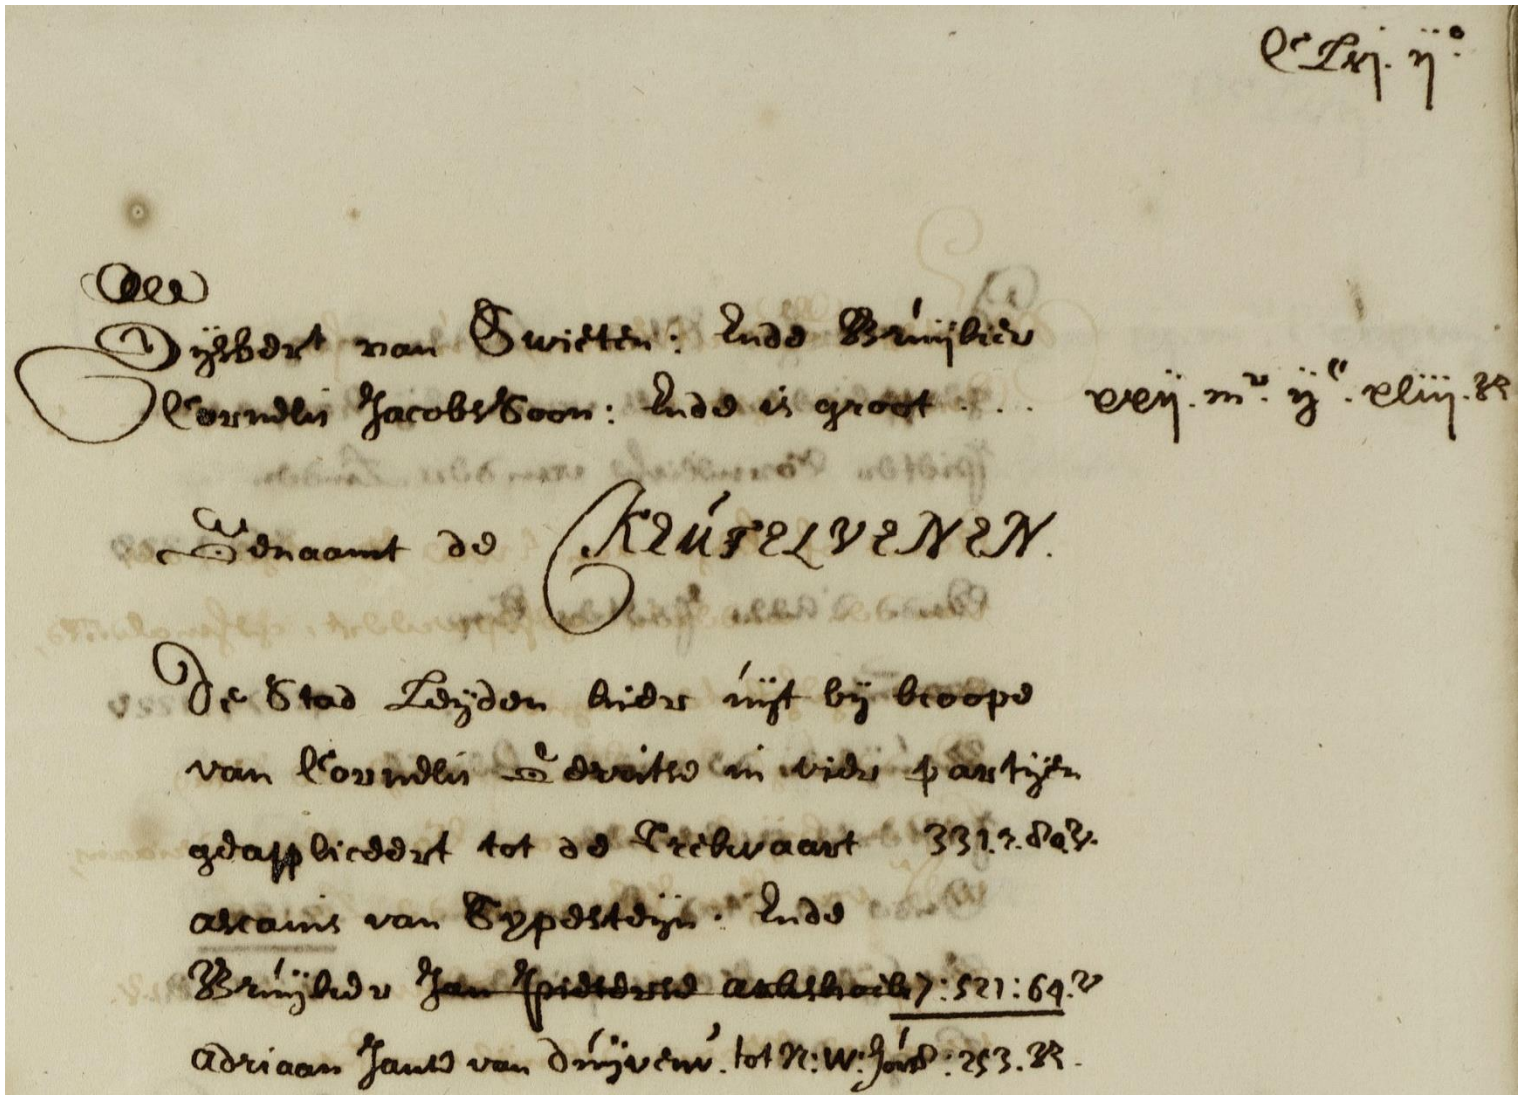 Gijsbert van Swieten: Ende Bruijker
Cornelis JacobsSoon: Ende is groot . . . xxij. mr. ijc. xliij. R
Genaamt de KEUTELVENEN.
De Stad Leijden hier uijt bij koope
van Cornelis Gerritse in vier partijen
geappliceert tot de Trekvaart 331. r.
ascanis van Sypesteijn. Ende
Bruijker Jan Pieterse 7:521:64. v
Adriaan Jans van duijven. tot N: W: : 253. R.